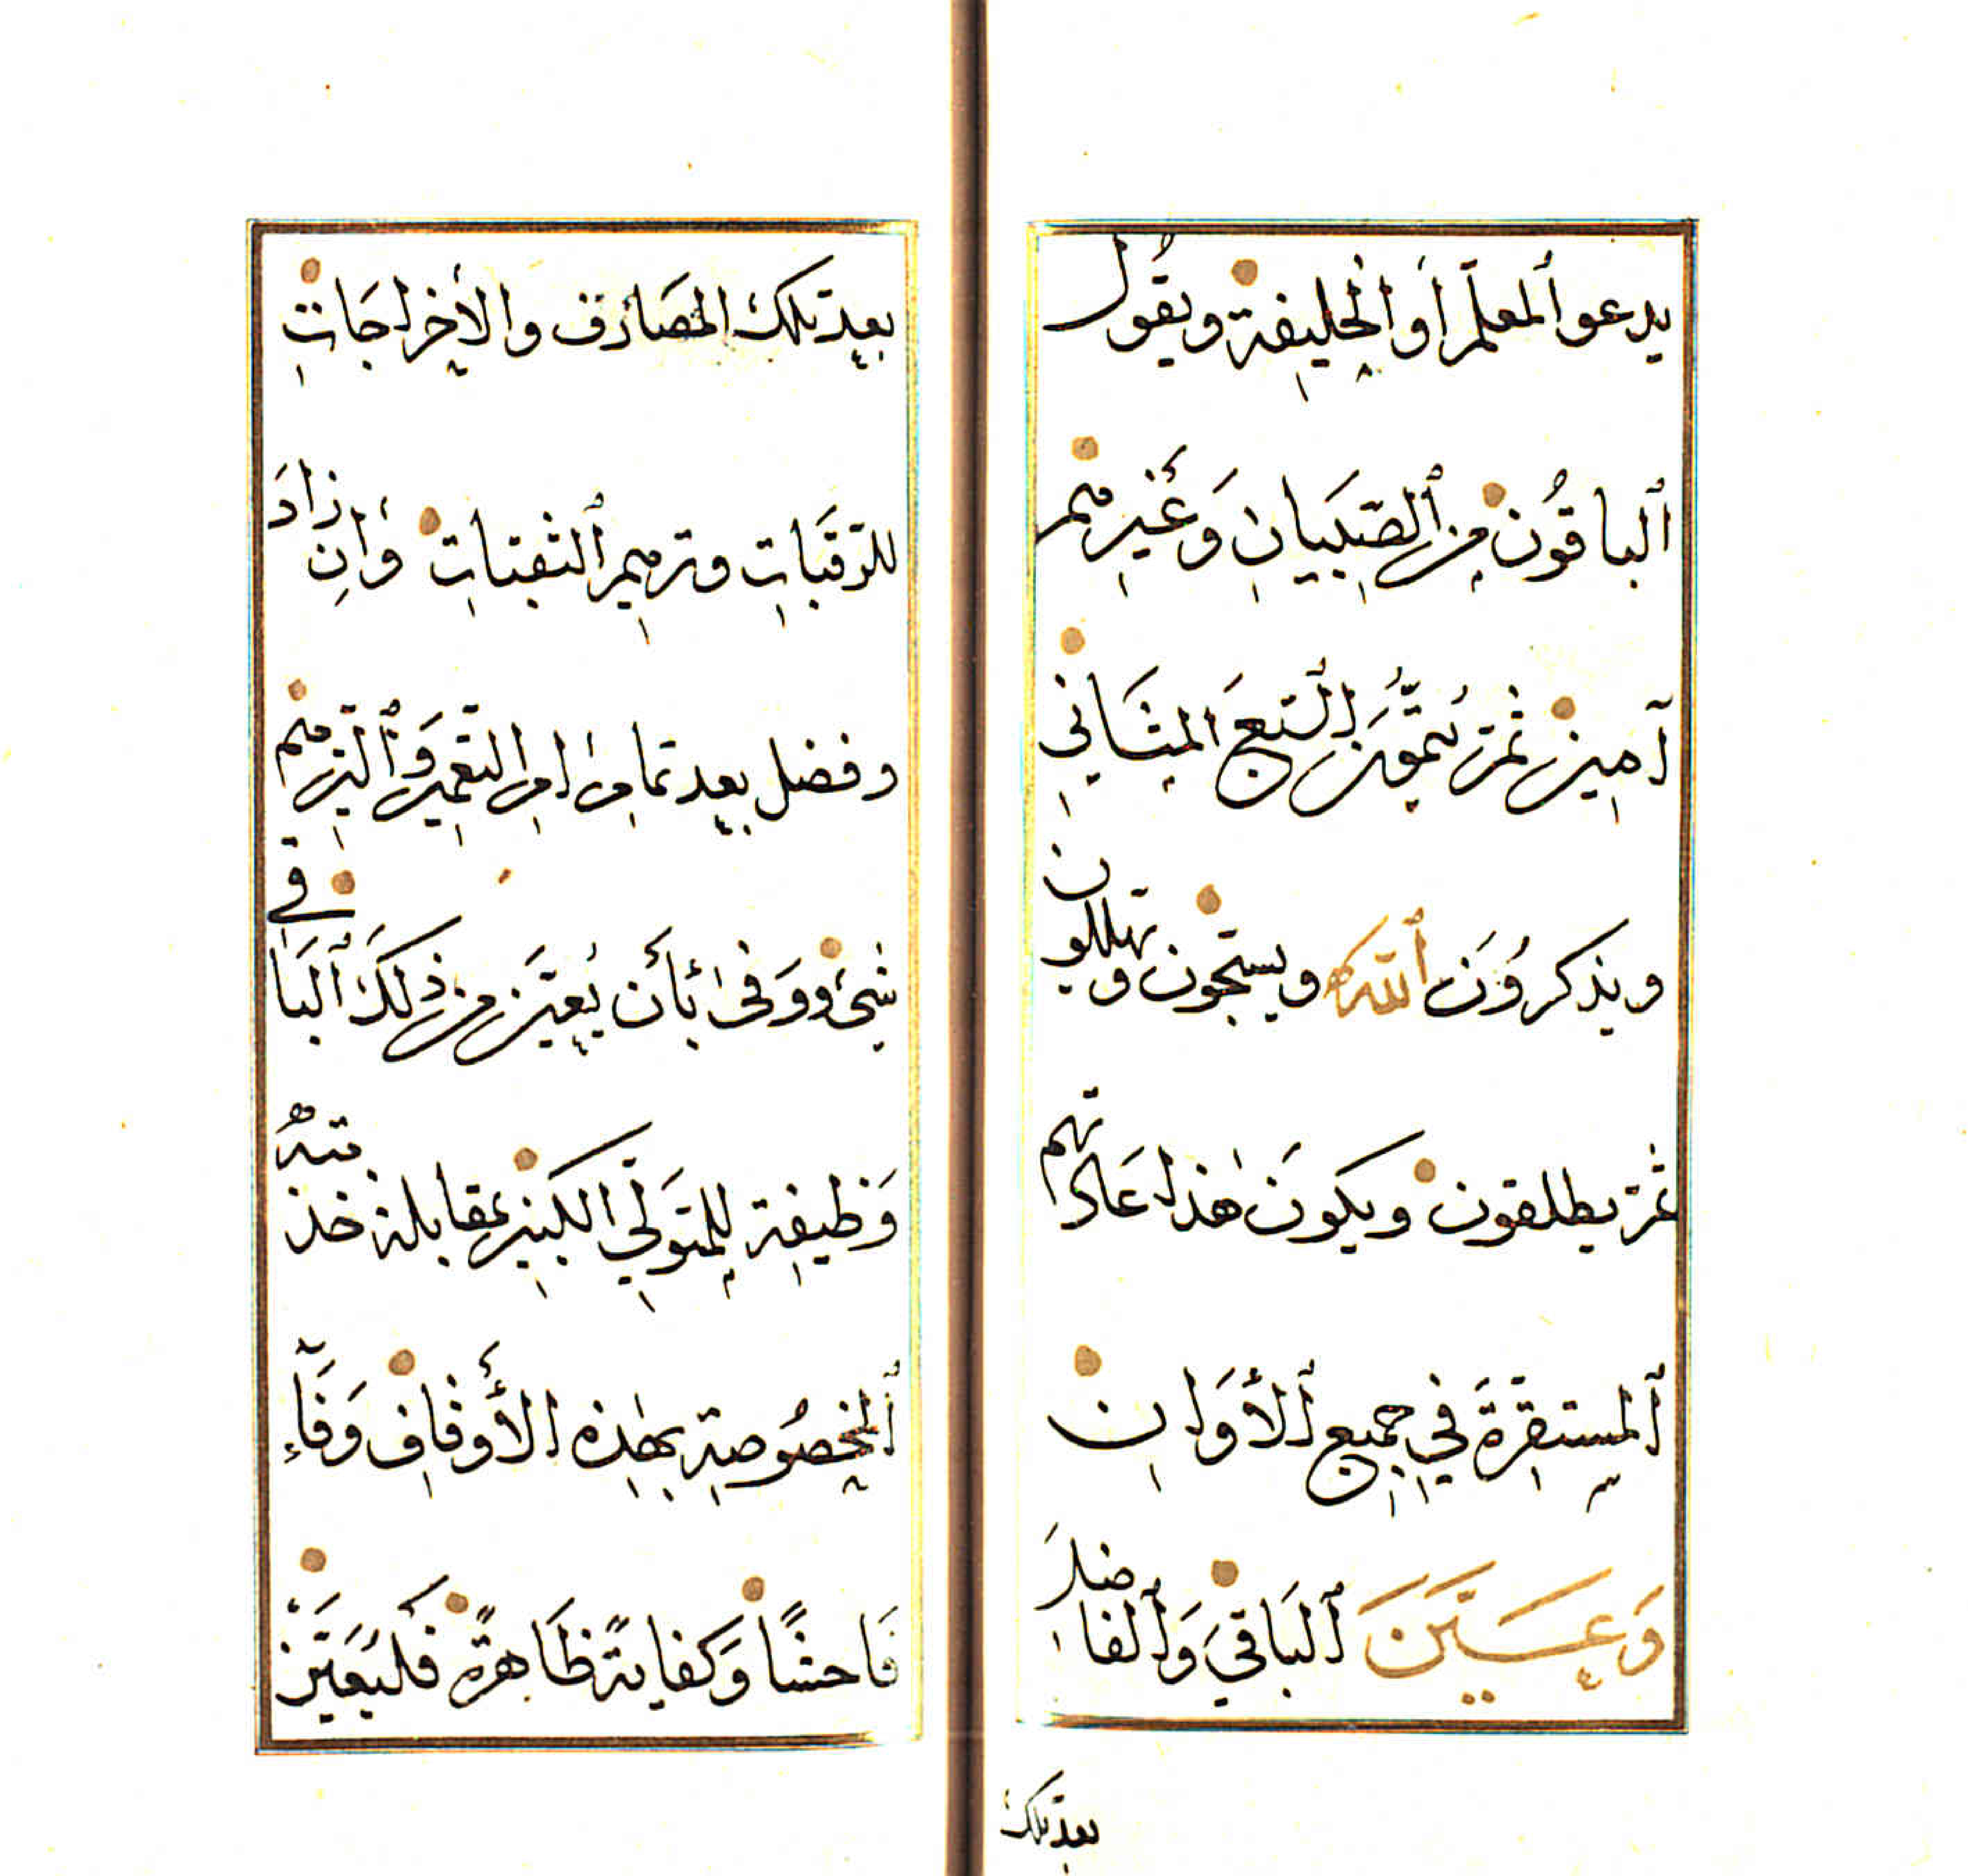 يدعو ٱلمعلّم أو ٱلخليفة ويقُول
ٱلباقُون مِن ٱلصّبيانِ وَغَيرِهم
آمين ثمّ يُتمّونَ ٱلسّبعَ المثَانِي
ويذكرُونَ ٱللّه ويسبّحون ويهللون
ثمّ يطلقون ويكونَ هٰذا عَادتهم
ٱلمستقِرّةَ فِي جميعِ ٱلأوَانِ
وَعَيَّنَ ٱلبَاقيَ وَٱلفاضلَ
بعد تلك
بعد تلك المصَارف والإخراجَاتِ
للرّقبَاتِ وترميمِ ٱلثفتاتِ وَإن زادَ
وفضل بعد تمامِ أمرِ ٱلتعميرِ وَٱلترميم
شيء ووَفىٰ بأَن يُعيّن من ذٰلكَ ٱلبَاقي
وَظيفة لِلمتَولّي الكبيرِ بمقابلة خذمتهُ
ٱلمخصُوصةِ بهٰذِهِ الأَوقافِ وَفَآءً
فَاحشًا وَكفايةً ظَاهرةً فليُعَيّنْ